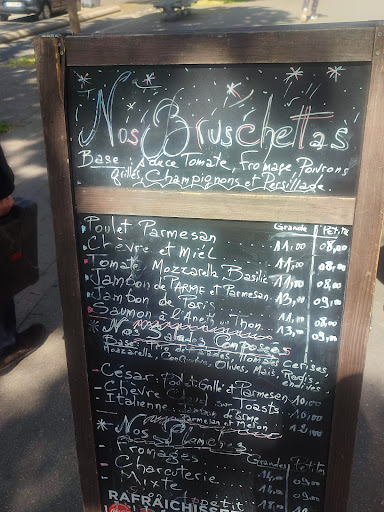 Nos Bruschettas
Base: sauce Tomate, fromage, Poivrons
grillés, Champignons et Persillade
Grande Petite
Poulet Parmesan 11,00 08,00
Chèvre et Miel 11,00 08,00
Tomate Mozzarella Basilic 11,00 08,00
Jambon de Parme et Parmesan 13,00 09,00
Jambon de Paris 11,00 08,00
Saumon à l'Aneth, Thon 13,00 09,00
* Nos Salades Composées
Base: de Salades, Tomates Cerises,
Mozzarella, Olives, Maïs, Radis,
César: Poulet Grillé et Parmesan 10,00
Chèvre sur Toasts 10,00
Italienne: Jambon Parme
Parmesan et Melon 12,00
* Nos Planches
Grande Petite
Fromages 14,00 09,00
Charcuterie
Mixte
RAFRAÎCHISSE